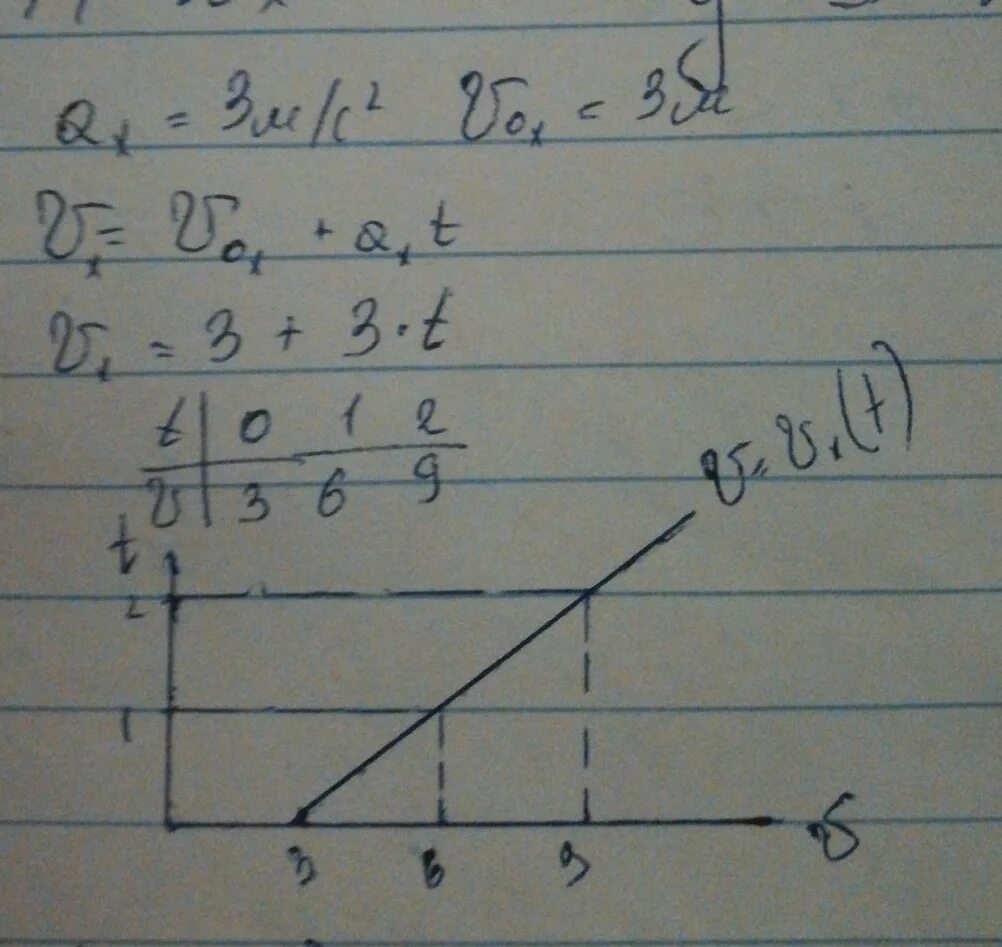 aₓ = 3м/с² 𝒱₀ₓ = 3м
𝒱ₓ = 𝒱₀ₓ + aₓt
𝒱ₓ = 3 + 3·t
t | 0 1 2
𝒱 | 3 6 9
𝒱ₓ = 𝒱ₓ(t)
t
2
1
3 6 9 𝒱